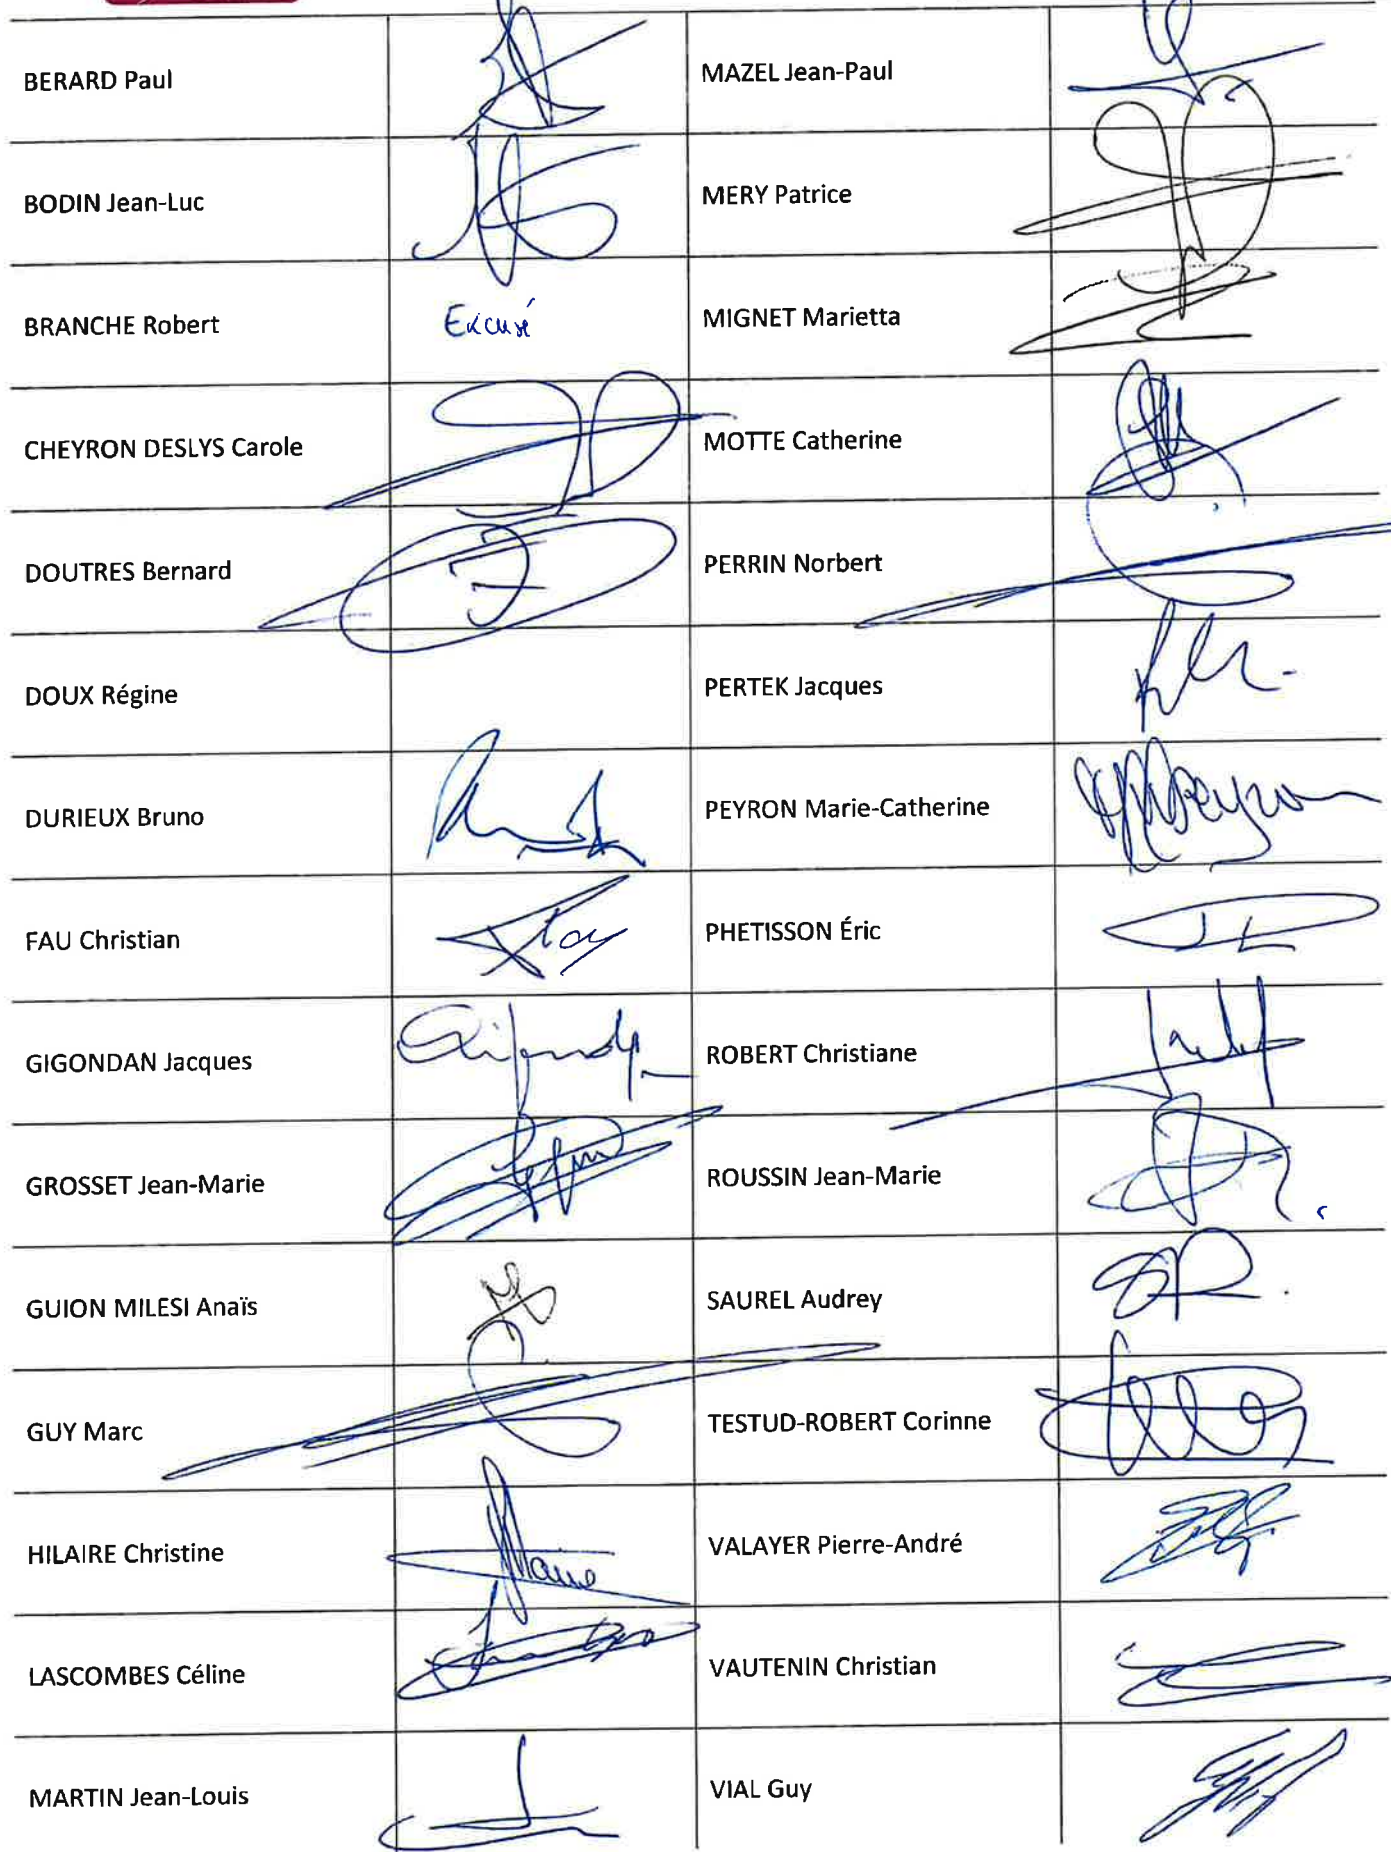 BERARD Paul
MAZEL Jean-Paul
BODIN Jean-Luc
MERY Patrice
BRANCHE Robert
Excusé
MIGNET Marietta
CHEYRON DESLYS Carole
MOTTE Catherine
DOUTRES Bernard
PERRIN Norbert
DOUX Régine
PERTEK Jacques
DURIEUX Bruno
PEYRON Marie-Catherine
FAU Christian
PHETISSON Éric
GIGONDAN Jacques
ROBERT Christiane
GROSSET Jean-Marie
ROUSSIN Jean-Marie
GUION MILESI Anaïs
SAUREL Audrey
GUY Marc
TESTUD-ROBERT Corinne
HILAIRE Christine
VALAYER Pierre-André
LASCOMBES Céline
VAUTENIN Christian
MARTIN Jean-Louis
VIAL Guy